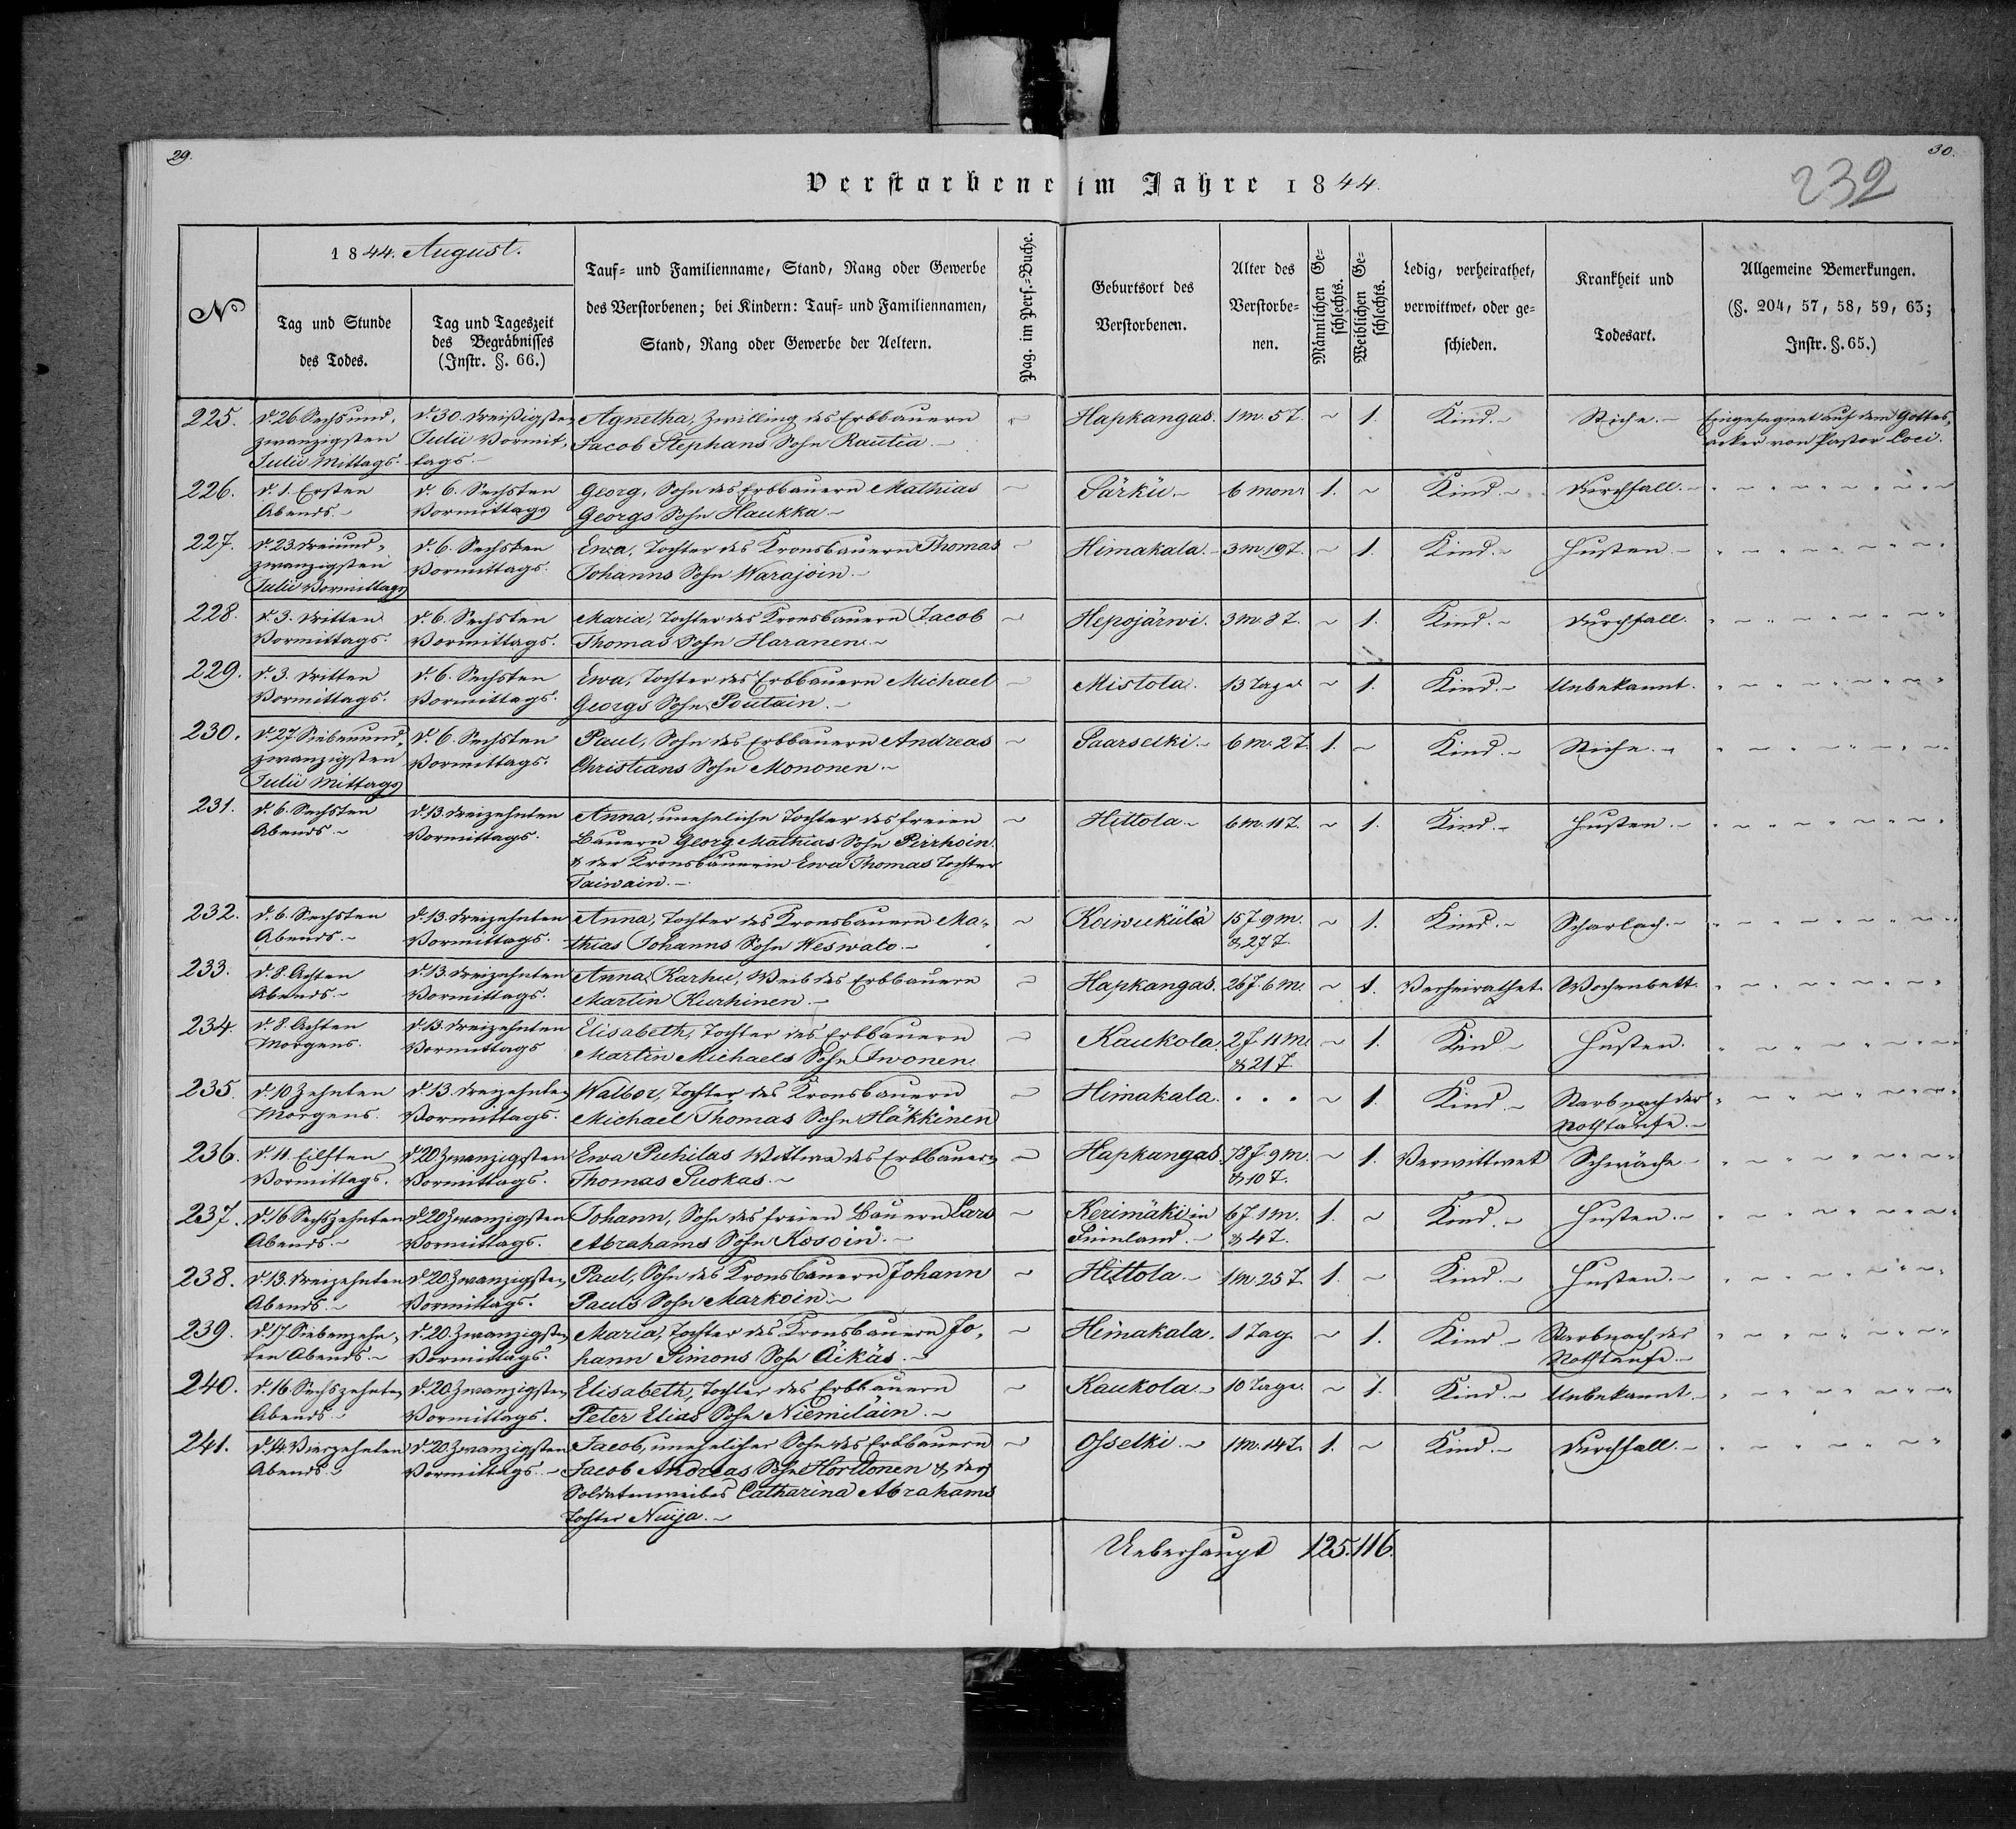 29.
30.
Verstorbene im Jahre 1844.
232
No
1844. August.
Tag und Stunde des Todes.
Tag und Tageszeit des Begräbnisses (Instr. §. 66.)
Tauf- und Familienname, Stand, Rang oder Gewerbe
des Verstorbenen; bei Kindern: Tauf- und Familiennamen,
Stand, Rang oder Gewerbe der Aeltern.
Pag. im Pers.-Buche.
Geburtsort des Verstorbenen.
Alter des Verstorbenen.
Männlichen Geschlechts.
Weiblichen Geschlechts.
Ledig, verheirathet, verwittwet, oder geschieden.
Krankheit und Todesart.
Allgemeine Bemerkungen.
(§. 204, 57, 58, 59, 63; Instr. §. 65.)
225. d. 26. Sechsund- d. 30. Dreißigsten Agnetha, Zwilling des Erbbauern ~ Hapkangas. 1 m. 5 T. ~ 1. Kind. Eingesegnet auf dem Gottes-
zwanzigsten Julii Vormit- Jacob Stephans Sohn Rautia. acker von Pastor Coci.
Julii Mittags. tags.
226. d. 1. Ersten d. 6. Sechsten Georg, Sohn des Erbbauern Mathias ~ Särkü. 6 mon. 1. ~ Kind. Durchfall.
Abends. Vormittags Georgs Sohn Haukka.
227. d. 23. Dreiund- d. 6. Sechsten Ewa, Tochter des Kronsbauern Thomas ~ Himakala. 3 m. 19 T. ~ 1. Kind. Husten.
zwanzigsten Vormittags. Johanns Sohn Warajoin.
Julii Vormittags
228. d. 3. Dritten d. 6. Sechsten Maria, Tochter des Kronsbauern Jacob ~ Hepojärwi. 3 m. 8 T. ~ 1. Kind. Durchfall.
Vormittags. Vormittags. Thomas Sohn Haranen.
229. d. 3. Dritten d. 6. Sechsten Ewa, Tochter des Erbbauern Michael ~ Mistola. 13 Tage ~ 1. Kind. Unbekannt.
Vormittags. Vormittags. Georgs Sohn Poutain.
230. d. 27. Siebenund- d. 6. Sechsten Paul, Sohn des Erbbauern Andreas ~ Saarselki. 6 m. 2 T. 1. ~ Kind.
zwanzigsten Vormittags. Christians Sohn Mononen.
Julii Mittags
231. d. 6. Sechsten d. 13. Dreizehnten Anna, uneheliche Tochter des freien ~ Hittola. 6 m. 11 T. ~ 1. Kind. Husten.
Abends. Vormittags. Bauern Georg Mathias Sohn Pirrhoin
& der Kronsbäuerin Ewa Thomas Tochter
Taiwain.
232. d. 6. Sechsten d. 13. Dreizehnten Anna, Tochter des Kronsbauern Ma- ~ Koiwukülä 15 J. 9 m. ~ 1. Kind. Scharlach.
Abends. Vormittags. thias Johanns Sohn Weswalo. & 27 T.
233. d. 8. Achten d. 13. Dreizehnten Anna Karhu, Weib des Erbbauern ~ Hapkangas. 26 J. 6 m. ~ 1. Verheirathet. Wochenbett.
Abends. Vormittags. Martin Kurhinen.
234. d. 8. Achten d. 13. Dreizehnten Elisabeth, Tochter des Erbbauern ~ Kaukola. 2 J. 11 m. ~ 1. Kind Husten.
Morgens. Vormittags Martin Michaels Sohn Iwonen. & 21 T.
235. d. 10 Zehnten d. 13. Dreizehnten Walbor, Tochter des Kronsbauern ~ Himakala. . . . ~ 1. Kind Starb nach der
Morgens. Vormittags. Michael Thomas Sohn Häkkinen Nothtaufe.
236. d. 11. Eilften d. 20. Zwanzigsten Ewa Puhilas Wittwe des Erbbauern ~ Hapkangas. 78 J. 9 m. ~ 1. Verwittwet Schwäche
Vormittags. Vormittags. Thomas Puokas. & 10 T.
237. d. 16 Sechszehnten d. 20 Zwanzigsten Johann, Sohn des freien Bauern Lars ~ Kerimäki in 6 J. 1 m. 1. ~ Kind. Husten.
Abends. Vormittags. Abrahams Sohn Kosoin. Finnland. & 4 T.
238. d. 13. Dreizehnten d. 20. Zwanzigsten Paul, Sohn des Kronsbauern Johann ~ Hittola. 1 m. 25 T. 1. ~ Kind. Husten.
Abends. Vormittags. Pauls Sohn Markoin.
239. d. 17. Siebenzehn- d. 20. Zwanzigsten Maria, Tochter des Kronsbauern Jo- ~ Himakala. 1 Tag. ~ 1. Kind Starb nach der
ten Abends. Vormittags. hann Simons Sohn Äikäs. Nothtaufe.
240. d. 16 Sechszehnten d. 20 Zwanzigsten Elisabeth, Tochter des Erbbauern ~ Kaukola. 10 Tage. ~ 1. Kind. Unbekannt.
Abends. Vormittags. Peter Elias Sohn Niemiläin.
241. d. 14. Vierzehnten d. 20. Zwanzigsten Jacob, unehelicher Sohn des Erbbauern ~ Osselki. 1 m. 14 T. 1. ~ Kind. Durchfall.
Abends. Vormittags. Jacob Andreas Sohn Horttonen & des
Soldatenweibes Catharina Abrahams
Tochter Nuija.
Ueberhaupt 125. 116.